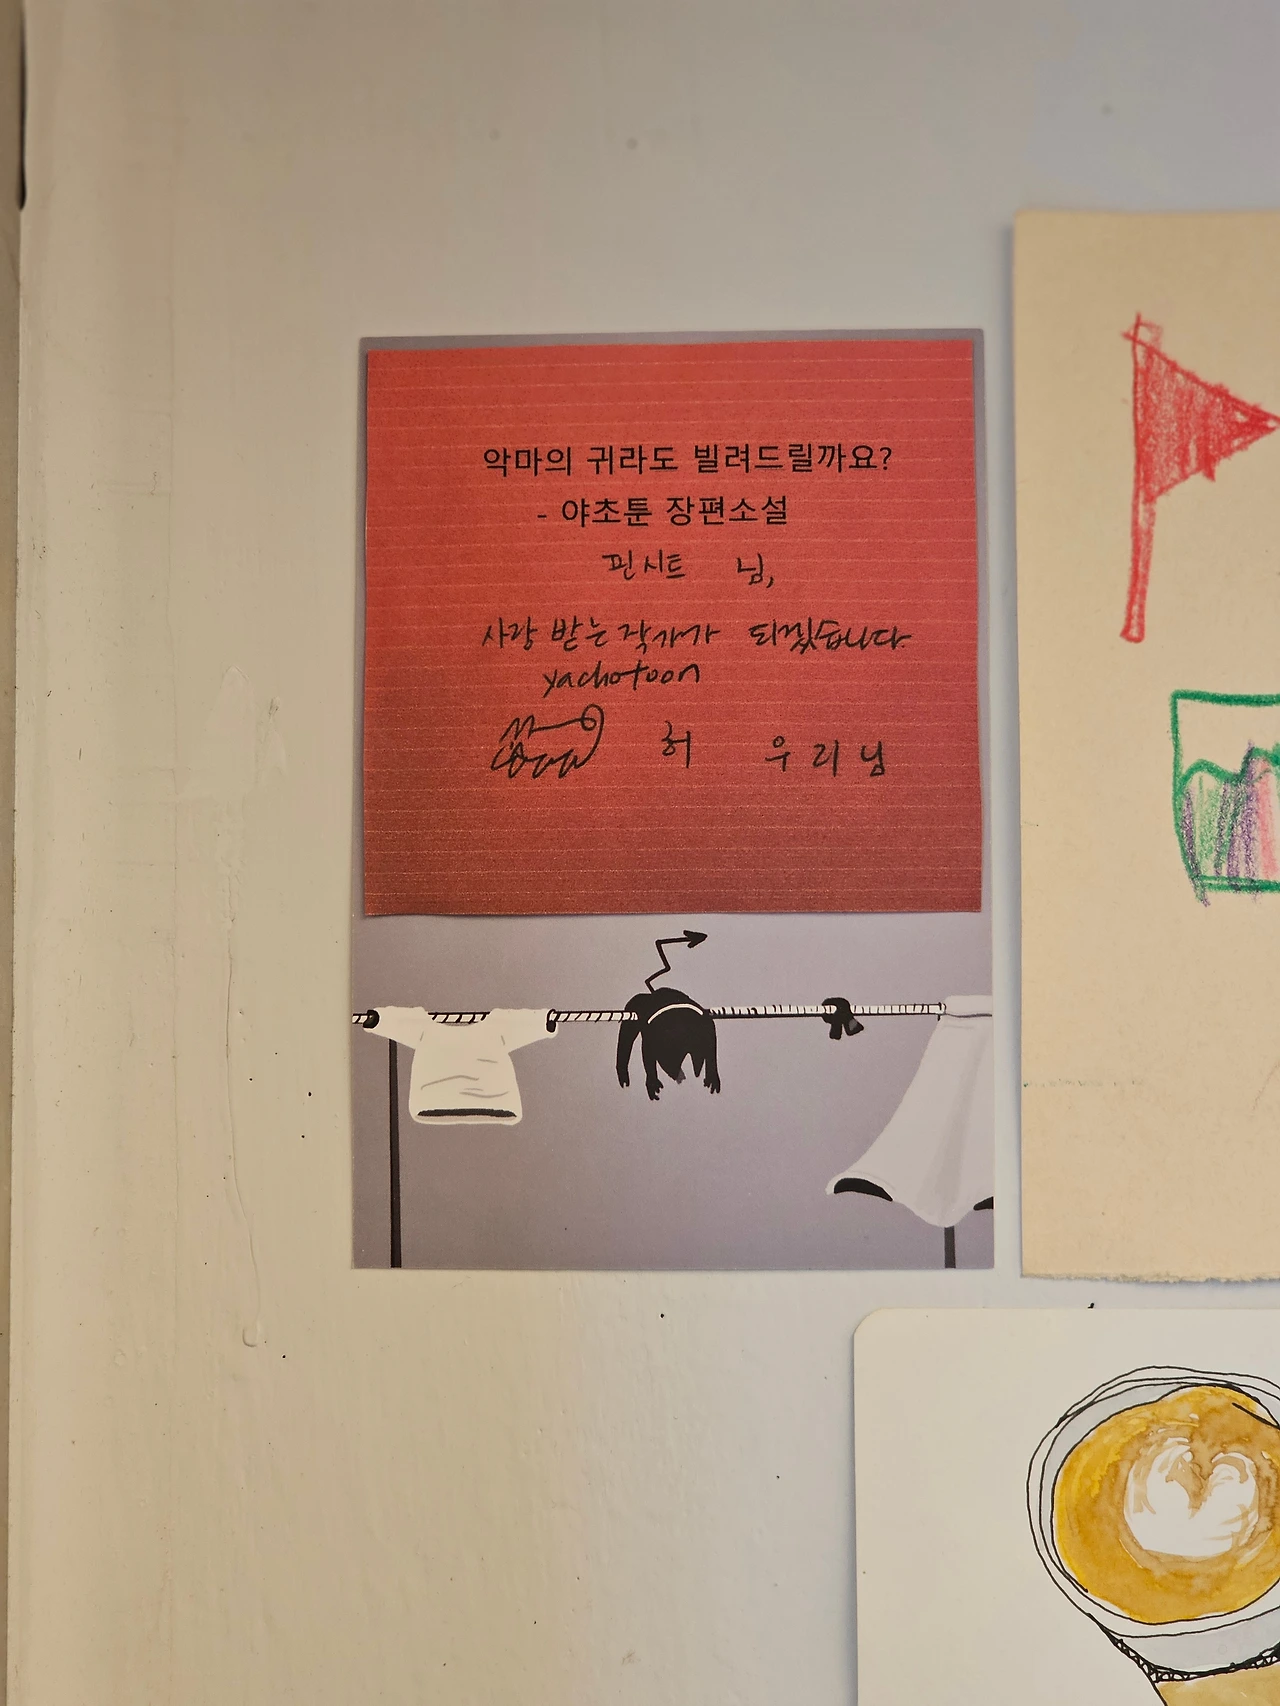 악마의 귀라도 빌려드릴까요?
- 야초툰 장편소설
핀시트 님,
사랑 받는 작가가 되겠습니다.
yachotoon
허 우리님